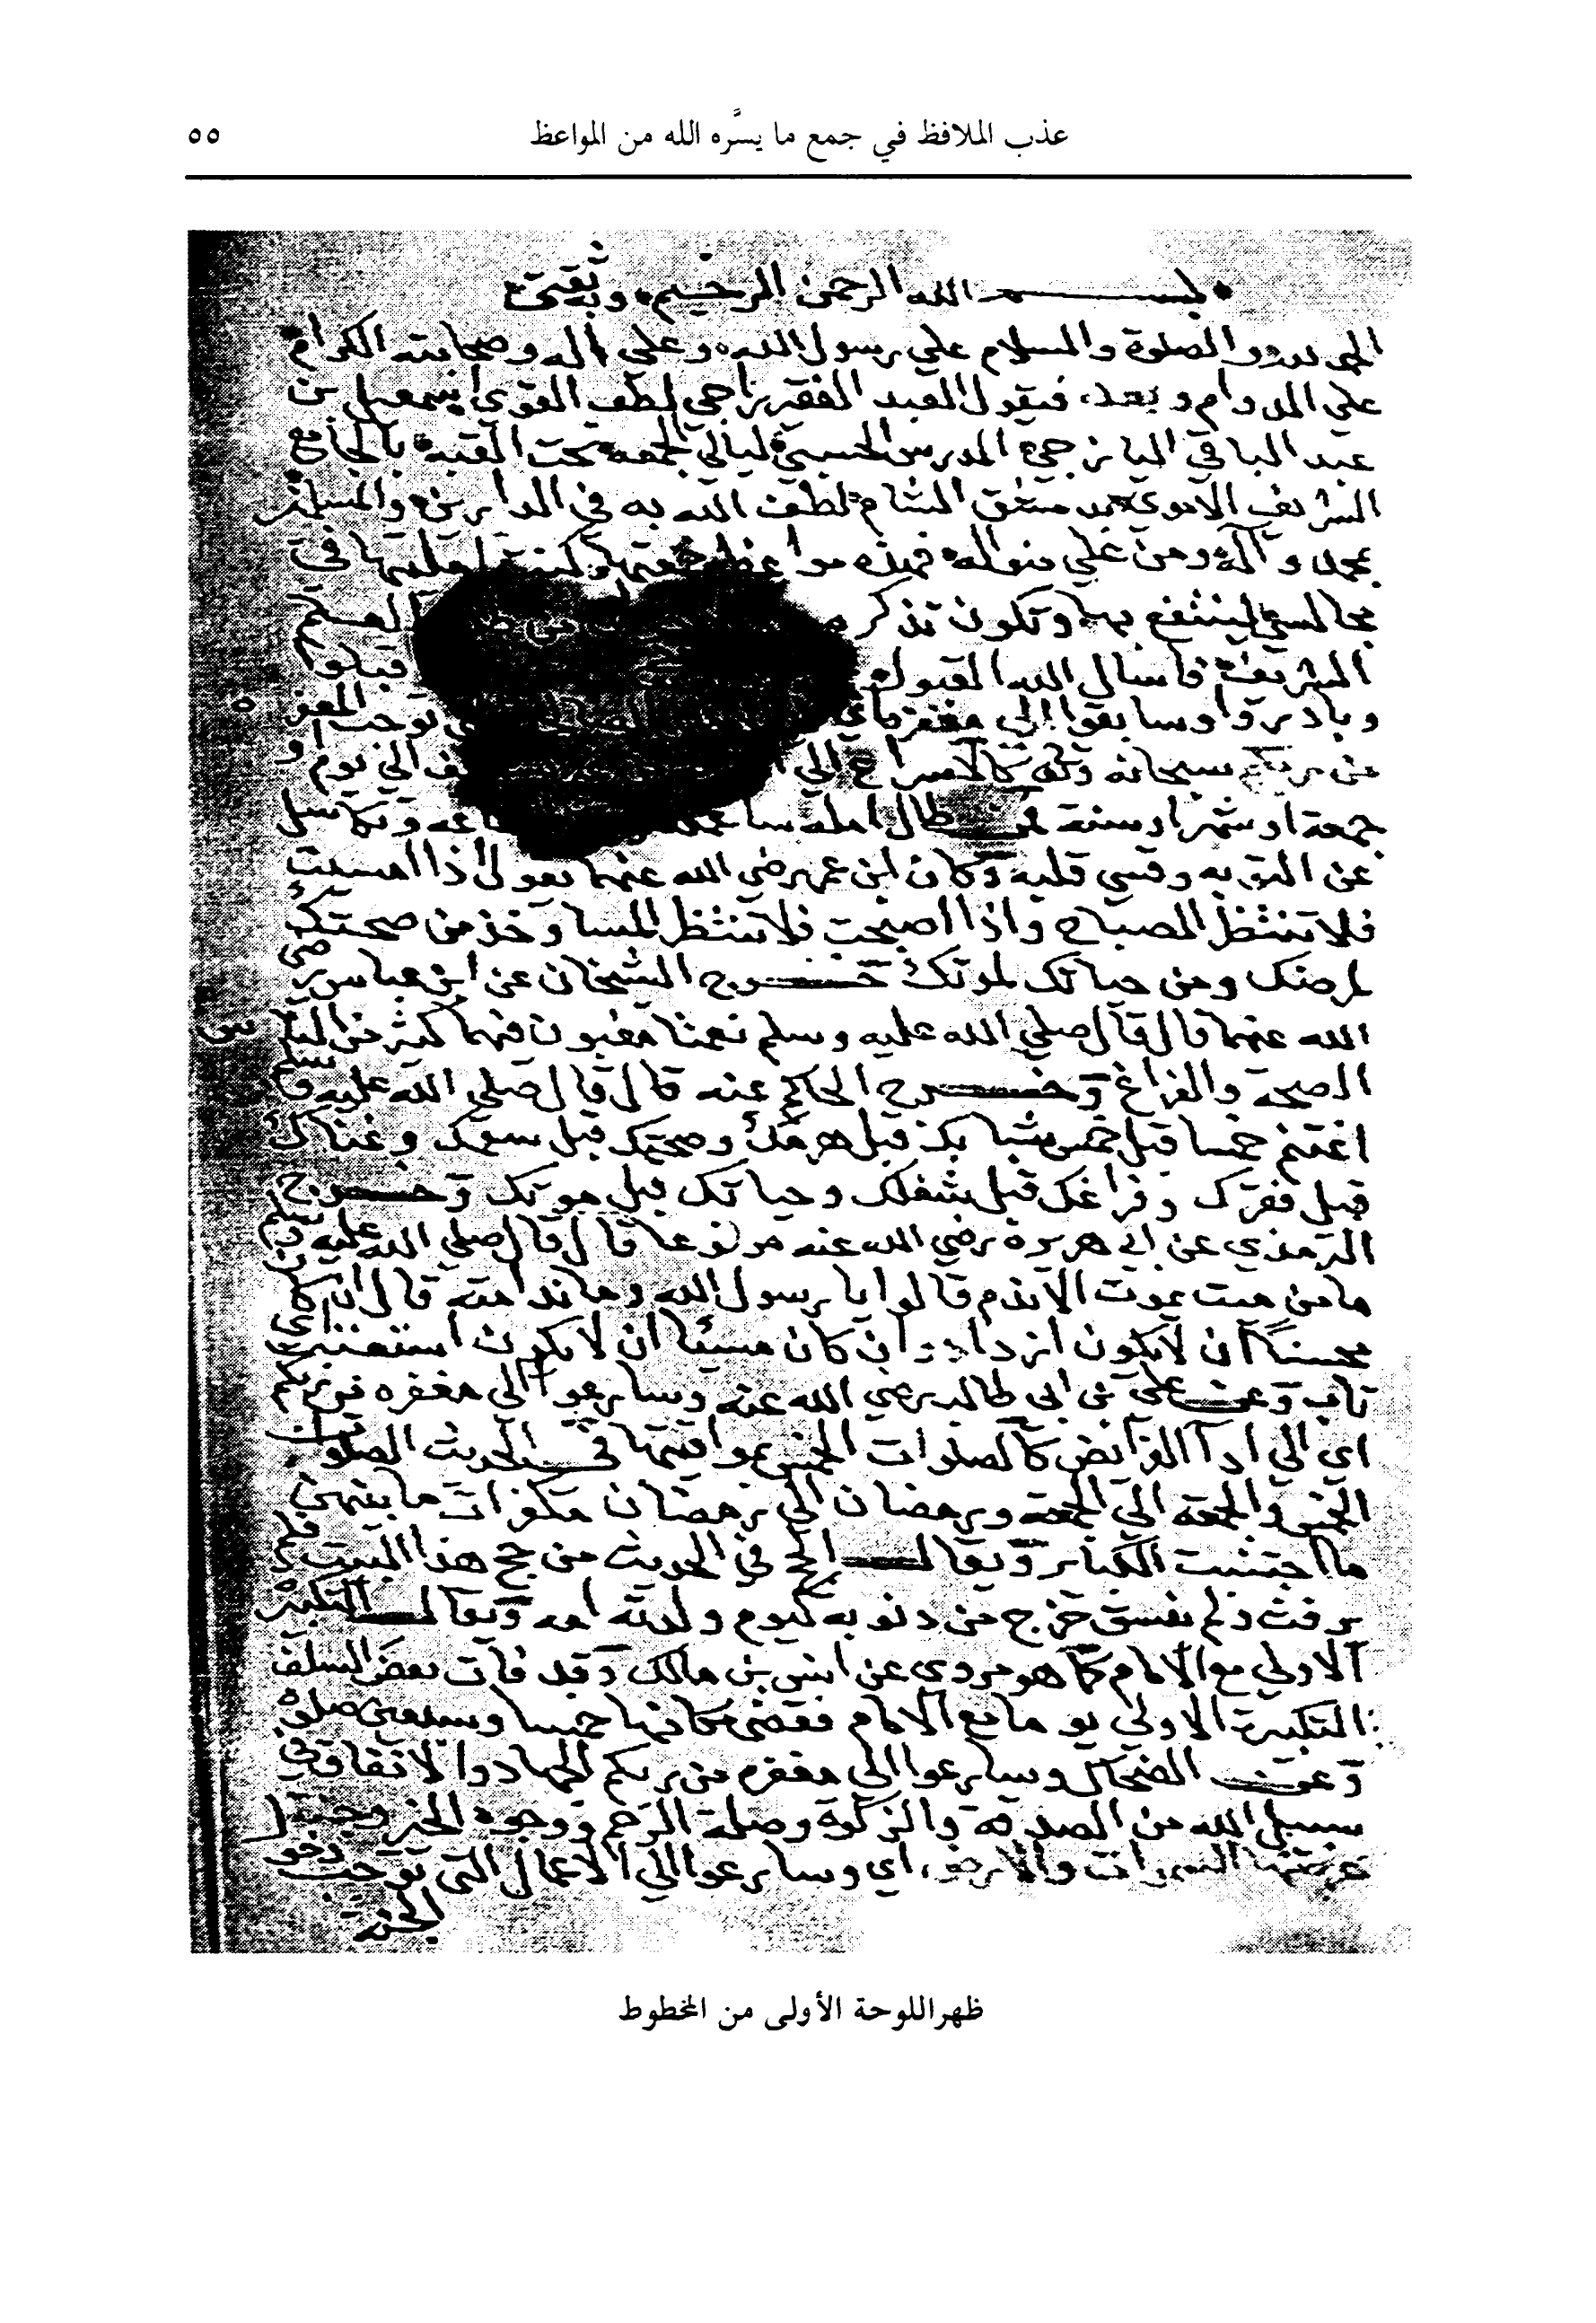 عذب الملافظ في جمع ما يسَّره الله من المواعظ
٥٥
بسم الله الرحمن الرحيم وبه ثقتي
الحمد لله والصلوة والسلام علي رسول الله وعلي اله وصحابته الكرام
علي الدوام وبعد فيقول العبد الفقير راجي لطف القوي اسمعيل بن
عبد الباقي اليازجي المدرس الحسبي ليالي الجمعة تحت القبة بالجامع
الشريف الاموي بدمشق الشام لطف الله به في الدارين والمسلمين
بمحمد وآله ومن علي منواله فهذه مواعظ جمعتها وكنت امليها في
مجالسي لينتفع بها وتكون تذكر
الشريف فاسال الله القبول
وبادروا وسابقوا الي مغفرة اي توجب المغفرة
من ربكم سبحانه وتعالى كالاسراع الي الي يوم و
جمعة او شهر او سنة فمن طال امله ساعمله وتكاسل
عن التوبه وقسي قلبه وكان ابن عمر رضي الله عنهما يقول اذا امسيت
فلا تنتظر الصباح واذا اصبحت فلا تنتظر المسا وخذ من صحتك
لمرضك ومن حياتك لموتك خرج الشيخان عن ابن عباس رضي
الله عنهما قال قال صلي الله عليه وسلم نعمتا مغبون فيهما كثير من الناس
الصحة والفراغ وخرج الحاكم عنه قال قال صلي الله عليه وسلم
اغتنم خمسا قبل خمس شبابك قبل هرمك وصحتك قبل سقمك وغناك
قبل فقرك وفراغك قبل شغلك وحياتك قبل موتك وخرج
الترمذي عن ابي هريرة رضي الله عنه مرفوعا قال قال صلي الله عليه وسلم
ما من ميت يموت الا ندم قالوا يا رسول الله وما ندامته قال ان كان
محسنا ان لا يكون ازداد وان كان مسيئا ان لا يكون استعتب اي
تاب وعن علي بن ابي طالب رضي الله عنه وسارعوا الي مغفرة من ربكم
اي الي ادآ الفرائض كالصلوات الخمس بمواقيتها في الحديث الصلوات
الخمس والجمعة الي الجمعة ورمضان الي رمضان مكفرات ما بينهن
ما اجتنبت الكبائر ويقال الحج في الحديث من حج هذا البيت فلم
يرفث ولم يفسق خرج من ذنوبه كيوم ولدته امه ويقال التكبيرة
الاولي مع الامام كما هو مروي عن انس بن مالك وقد فات بعض السلف
التكبيرة الاولي يوما مع الامام فقضي مكانها خمسا وسبعين صلوة
وعن الضحاك وسارعوا الي مغفرة من ربكم الجهاد والانفاق في
سبيل الله من الصدقة والزكوة وصلة الرحم ووجوه الخير وجنة
عرضها السموات والارض اي وسارعوا الي الاعمال التي توجب دخول
الجنة
ظهر اللوحة الأولى من المخطوط